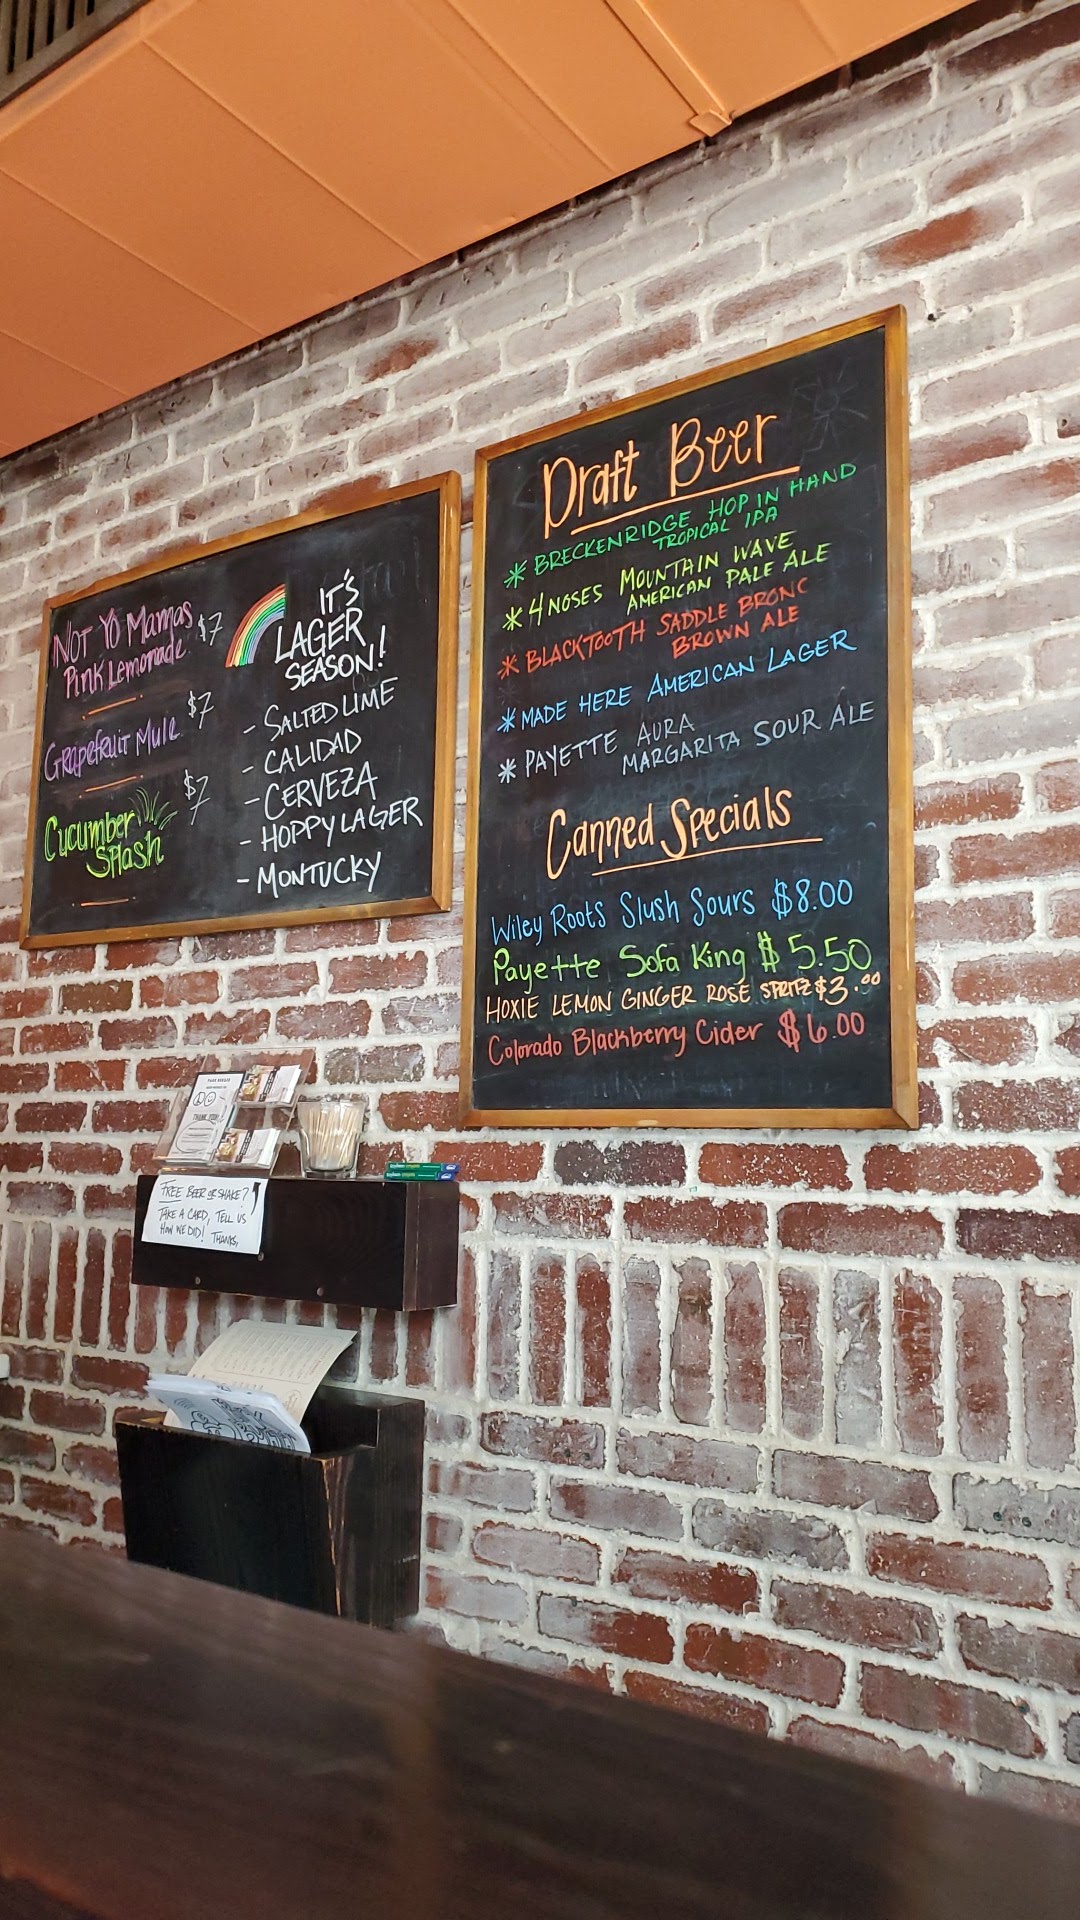 NOT YO Mamas $7
Pink Lemonade
Grapefruit Mule $7
Cucumber $7
Splash
IT'S
LAGER
SEASON!
- SALTED LIME
- CALIDAD
- CERVEZA
- HOPPY LAGER
- MONTUCKY
Draft Beer
* BRECKENRIDGE HOP IN HAND
TROPICAL IPA
* 4 NOSES MOUNTAIN WAVE
AMERICAN PALE ALE
* BLACKTOOTH SADDLE BRONC
BROWN ALE
* MADE HERE AMERICAN LAGER
* PAYETTE AURA
MARGARITA SOUR ALE
Canned Specials
Wiley Roots Slush Sours $8.00
Payette Sofa King $5.50
HOXIE LEMON GINGER ROSÉ SPRITZ $3.00
Colorado Blackberry Cider $6.00
THANK YOU
FREE BEER OR SHAKE?
TAKE A CARD, TELL US
HOW WE DID! THANKS,